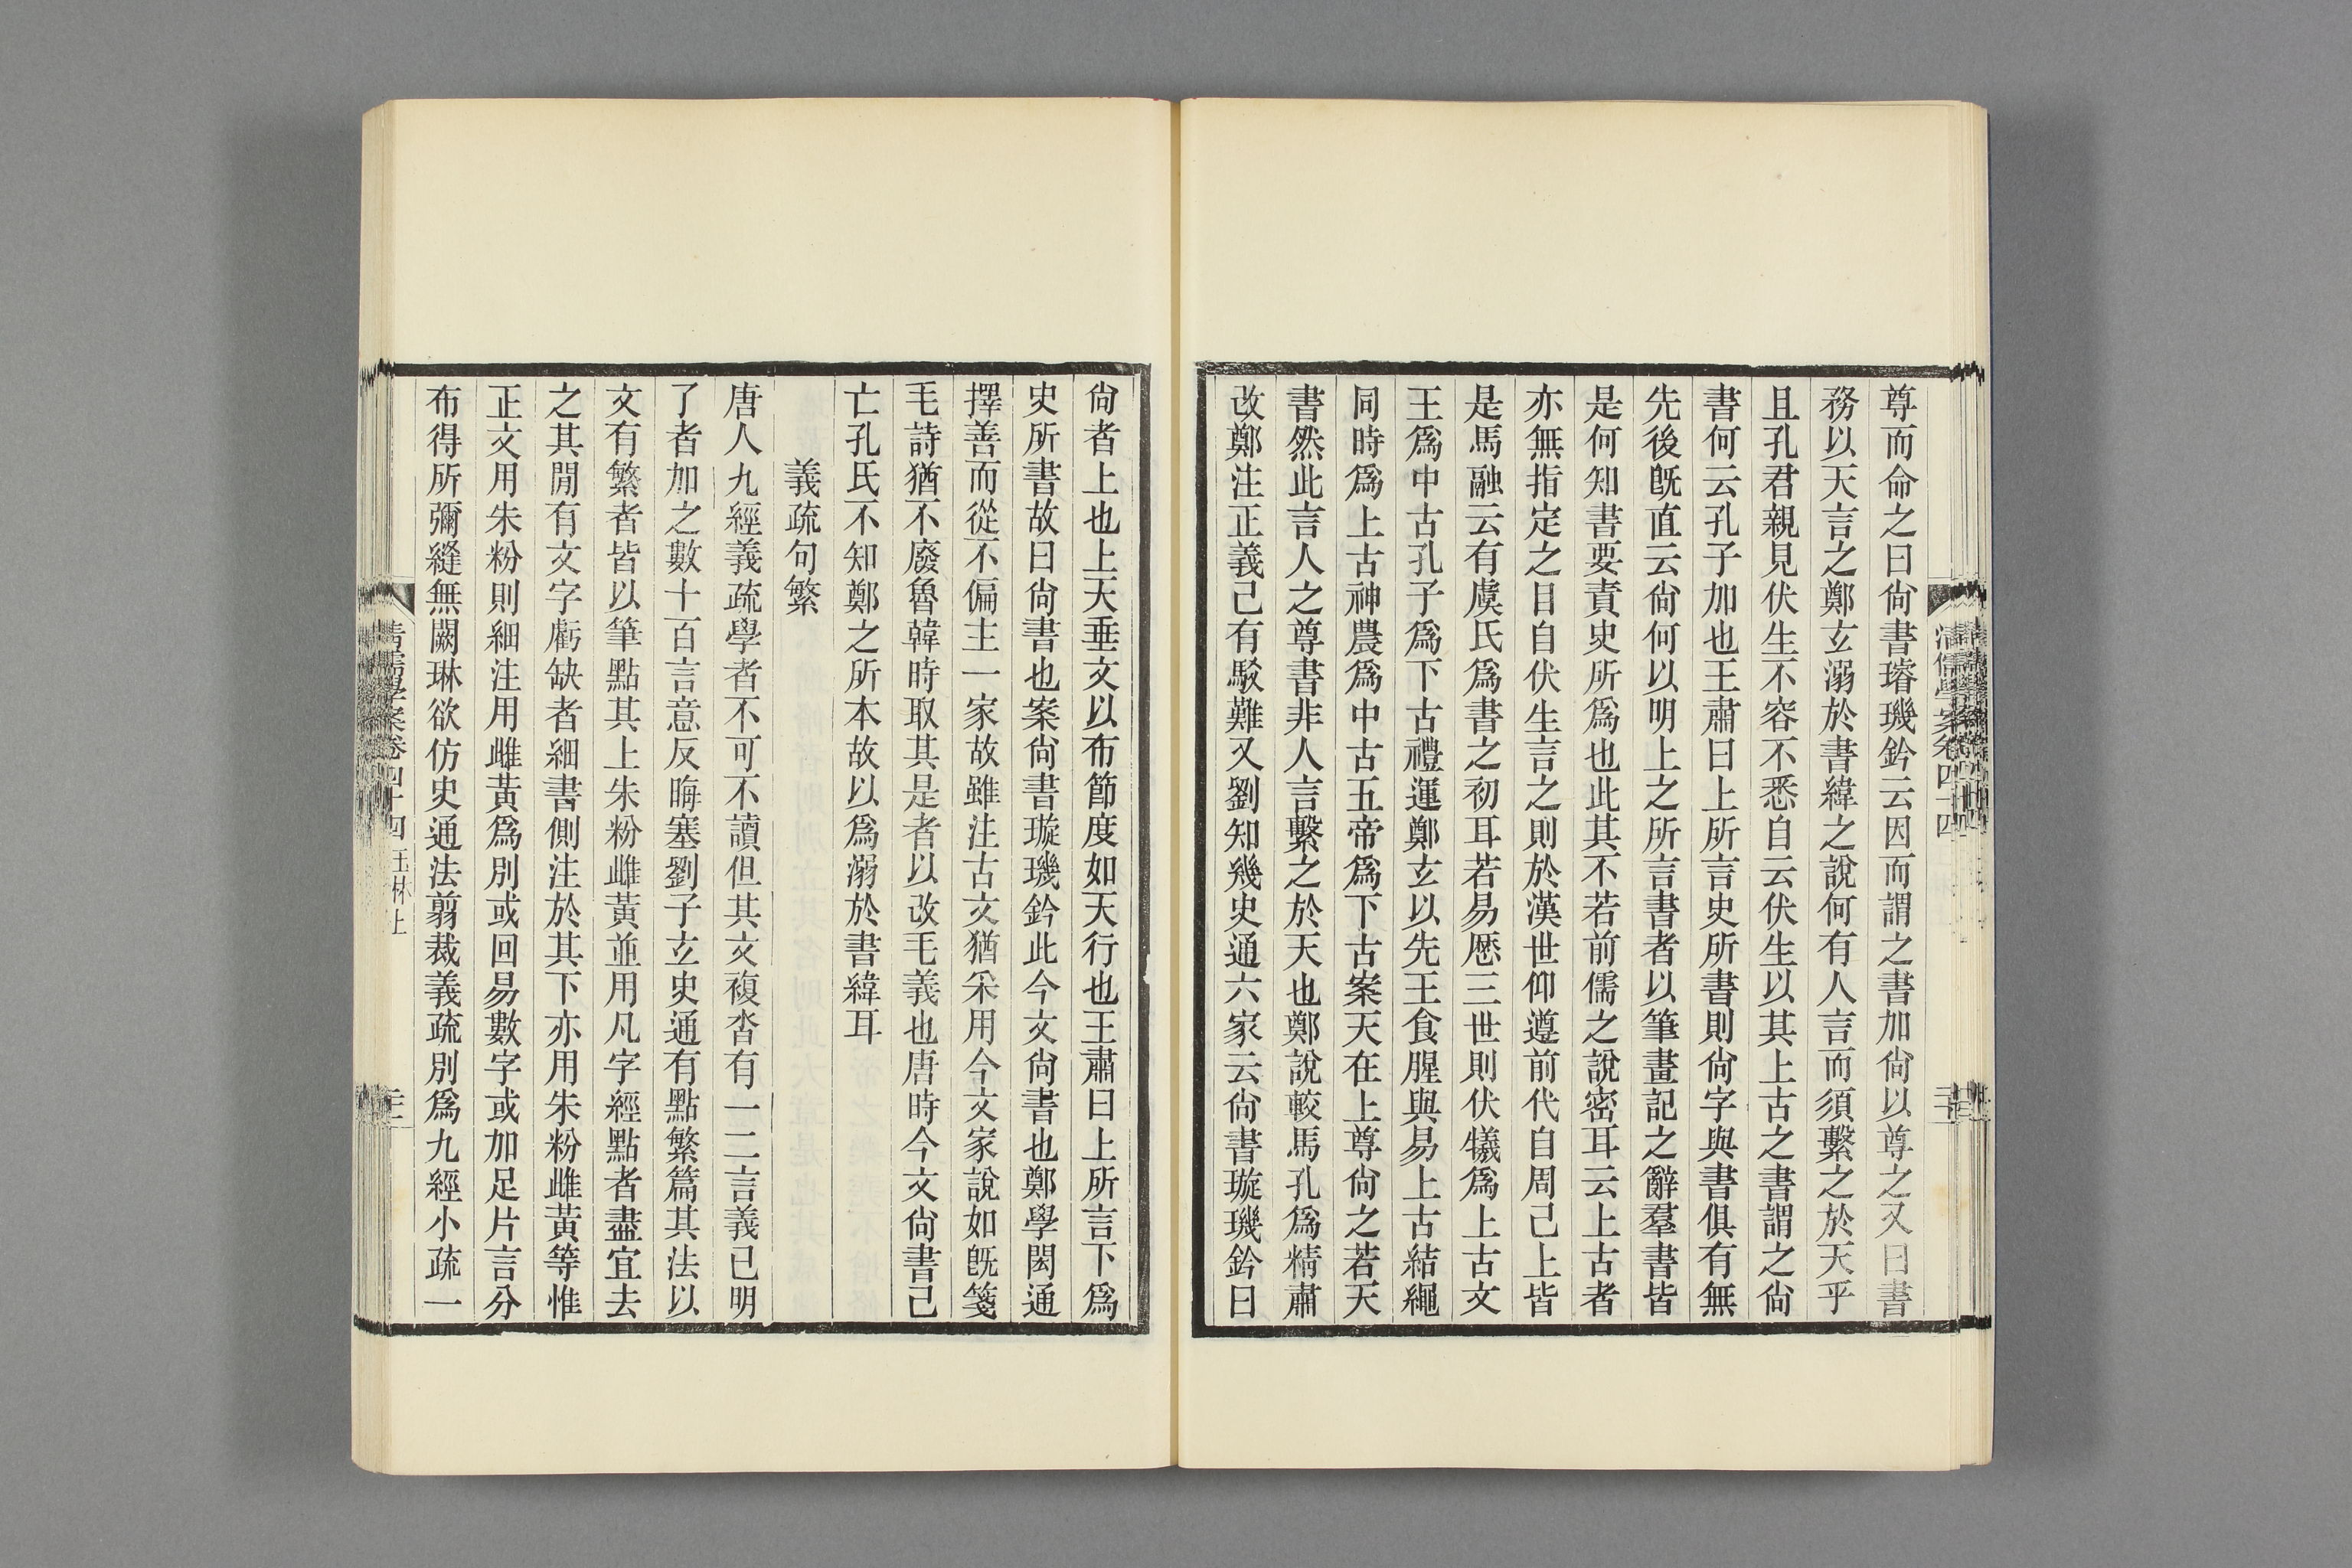 尊而命之曰尙書璿璣鈐云因而謂之書加尙以尊之又曰書
務以天言之鄭玄溺於書緯之說何有人言而須繫之於天乎
且孔君親見伏生不容不悉自云伏生以其上古之書謂之尙
書何云孔子加也王肅曰上所言史所書則尙字與書俱有無
先後旣直云尙何以明上之所言書者以筆畫記之辭羣書皆
是何知書要責史所爲也此其不若前儒之說密耳云上古者
亦無指定之目自伏生言之則於漢世仰遵前代自周己上皆
是馬融云有虞氏爲書之初耳若易歷三世則伏犧爲上古文
王爲中古孔子爲下古禮運鄭玄以先王食腥與易上古結繩
同時爲上古神農爲中古五帝爲下古案天在上尊尙之若天
書然此言人之尊書非人言繫之於天也鄭說較馬孔爲精肅
改鄭注正義己有駁難又劉知幾史通六家云尙書璇璣鈐曰
尙者上也上天垂文以布節度如天行也王肅曰上所言下爲
史所書故曰尙書也案尙書璇璣鈐此今文尙書也鄭學閎通
擇善而從不偏主一家故雖注古文猶采用今文家說如旣箋
毛詩猶不廢魯韓時取其是者以改毛義也唐時今文尙書己
亡孔氏不知鄭之所本故以爲溺於書緯耳
義疏句繁
唐人九經義疏學者不可不讀但其文複沓有一二言義已明
了者加之數十百言意反晦塞劉子玄史通有點繁篇其法以
文有繁者皆以筆點其上朱粉雌黃並用凡字經點者盡宜去
之其閒有文字虧缺者細書側注於其下亦用朱粉雌黃等惟
正文用朱粉則細注用雌黃爲別或回易數字或加足片言分
布得所彌縫無闕琳欲仿史通法翦裁義疏別爲九經小疏一
清儒學案卷四十四 玉林上